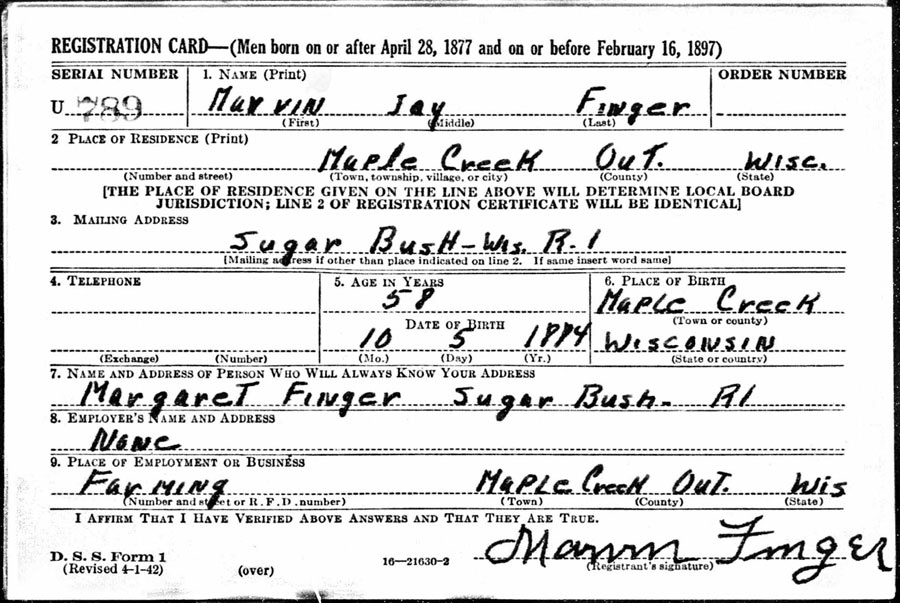 REGISTRATION CARD—(Men born on or after April 28, 1877 and on or before February 16, 1897)
SERIAL NUMBER 1. NAME (Print) ORDER NUMBER
U 789 Marvin Jay Finger
(First) (Middle) (Last)
2 PLACE OF RESIDENCE (Print)
Maple Creek Out. Wisc.
(Number and street) (Town, township, village, or city) (County) (State)
[THE PLACE OF RESIDENCE GIVEN ON THE LINE ABOVE WILL DETERMINE LOCAL BOARD
JURISDICTION; LINE 2 OF REGISTRATION CERTIFICATE WILL BE IDENTICAL]
3. MAILING ADDRESS
Sugar Bush - Wis. R.1
[Mailing address if other than place indicated on line 2. If same insert word same]
4. TELEPHONE 5. AGE IN YEARS 6. PLACE OF BIRTH
58 Maple Creek
DATE OF BIRTH (Town or county)
10 5 1884 Wisconsin
(Exchange) (Number) (Mo.) (Day) (Yr.) (State or country)
7. NAME AND ADDRESS OF PERSON WHO WILL ALWAYS KNOW YOUR ADDRESS
Margaret Finger Sugar Bush - R1
8. EMPLOYER'S NAME AND ADDRESS
None
9. PLACE OF EMPLOYMENT OR BUSINESS
Farming Maple Creek Out. Wis
(Number and street or R. F. D. number) (Town) (County) (State)
I AFFIRM THAT I HAVE VERIFIED ABOVE ANSWERS AND THAT THEY ARE TRUE.
D. S. S. Form 1
(Revised 4-1-42) (over) 16—21630-2 Marvin Finger
(Registrant's signature)